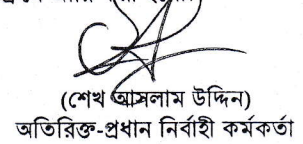 (শেখ আসলাম উদ্দিন)
অতিরিক্ত-প্রধান নির্বাহী কর্মকর্তা